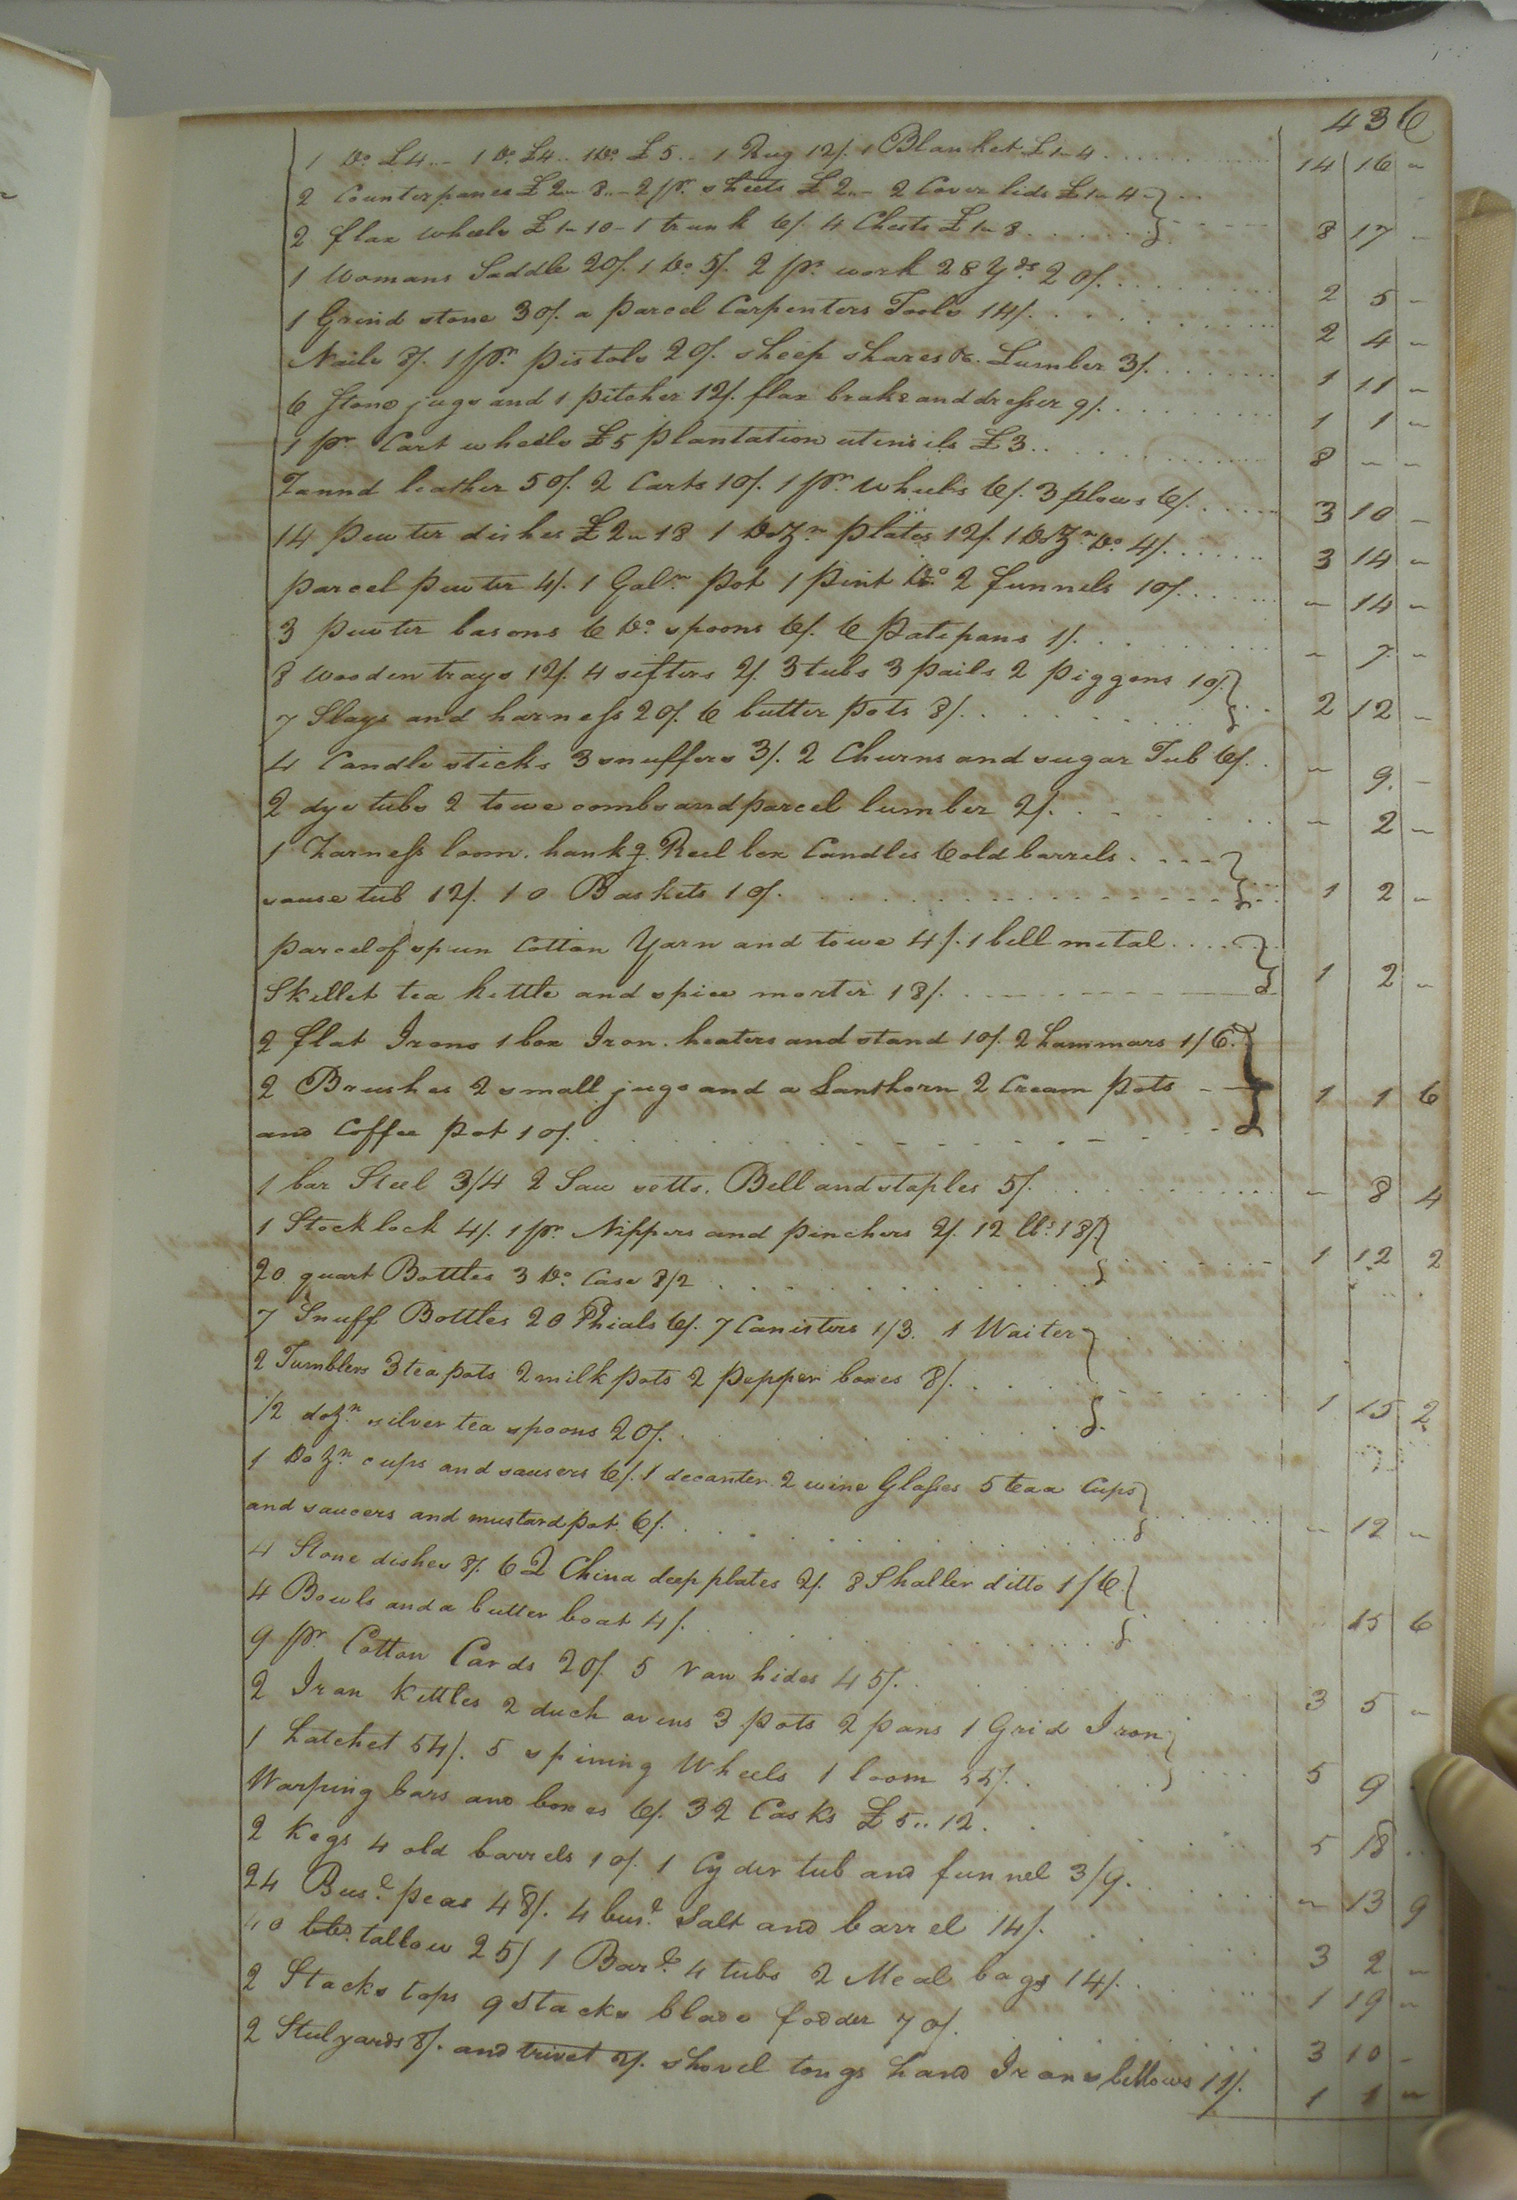 436
1 Do £4..- 1 Do. £4.. 1 Do. £5..- 1 Rug 12/. 1 Blanket £1-4 14 16 -
2 Counterpanes £2-8..-2 pr. sheets £2..- 2 Cover lids £1-4-
2 flax wheels £1-10-1 trunk 6/. 4 Chests £1-8 8 17 -
1 Womans Saddle 20/. 1 Do. 5/. 2 ps. work 28 Yds 20/. 2 5 -
1 Grind stone 30/. a parcel Carpenters Tools 14/. 2 4 -
Nails 8/. 1 pr. pistols 20/. sheep shares &c. Lumber 3/. 1 11 -
6 Stone jugs and 1 pitcher 12/. flax brake and dresser 9/. 1 1 -
1 pr. Cart wheels £5 plantation utensils £3.. 8 - -
Tannd leather 50/. 2 Carts 10/. 1 pr. wheels 6/. 3 plows 6/. 3 10 -
14 pewter dishes £2-18 1 Dozn plates 12/. 1 Dozn Do. 4/. 3 14 -
parcel pewter 4/. 1 Galn pot 1 pint Do. 2 funnels 10/. - 14 -
3 pewter basons 6 Do. spoons 6/. 6 Patipans 1/. - 7 -
8 wooden trays 12/. 4 sifters 2/. 3 tubs 3 pails 2 piggens 10/.
7 Slays and harness 20/. 6 butter pots 8/. 2 12 -
4 Candle sticks 3 snuffers 3/. 2 Churns and sugar Tub 6/. - 9 -
2 dye tubs 2 towe combs and parcel lumber 2/. - 2 -
1 harness loom. hankg. Reel box Candles 6 old barrels
souse tub 12/. 10 Baskets 10/. 1 2 -
parcel of spun Cotton Yarn and towe 4/. 1 bell metal
Skillet tea kettle and spice morter 18/. 1 2 -
2 flat Irons 1 box Iron. heaters and stand 10/. 2 hammars 1/6.
2 Brushes 2 small jugs and a Lanthorn 2 Cream pots
and Coffee pot 10/. 1 1 6
1 bar Steel 3/4 2 Saw setts. Bell and staples 5/. - 8 4
1 Stock lock 4/. 1 pr. Nippers and pinchers 2/. 12 lbs. 18/.
20 quart Bottles 3 Do. Case 8/2 1 12 2
7 Snuff Bottles 20 Phials 6/. 7 Canisters 1/3. 1 Waiter
2 Tumblers 3 tea pots 2 milk pots 2 pepper boxes 8/.
1/2 dozn. silver tea spoons 20/. 1 15 2
1 Dozn cups and sausers 6/. 1 decanter. 2 wine Glasses 5 teaa Cups
and saucers and mustard pot. 6/. - 12 -
4 Stone dishes 8/. 62 China deep plates 2/. 8 Shaller ditto 1/6.
4 Bowls and a butter boat 4/. 15 6
9 pr. Cotton Cards 20/. 5 raw hides 45/. 3 5 -
2 Iron kettles 2 duch ovens 3 pots 2 pans 1 Grid Iron
1 hatchet 54/. 5 spining Wheels 1 loom 55/. 5 9
Warping bars and boxes 6/. 32 Casks £5..12. 5 18
2 kegs 4 old barrels 10/. 1 Cyder tub and funnel 3/9. - 13 9
24 Busl. peas 48/. 4 busl. Salt and barrel 14/. 3 2 -
40 lbs. tallow 25/ 1 Barl. 4 tubs 2 Meal bags 14/. 1 19 -
2 Stacks tops 9 stacks blade fodder 70/. 3 10 -
2 Stulyards 8/. and trivet 2/. shovel tongs hand Irons bellows 11/. 1 1 -